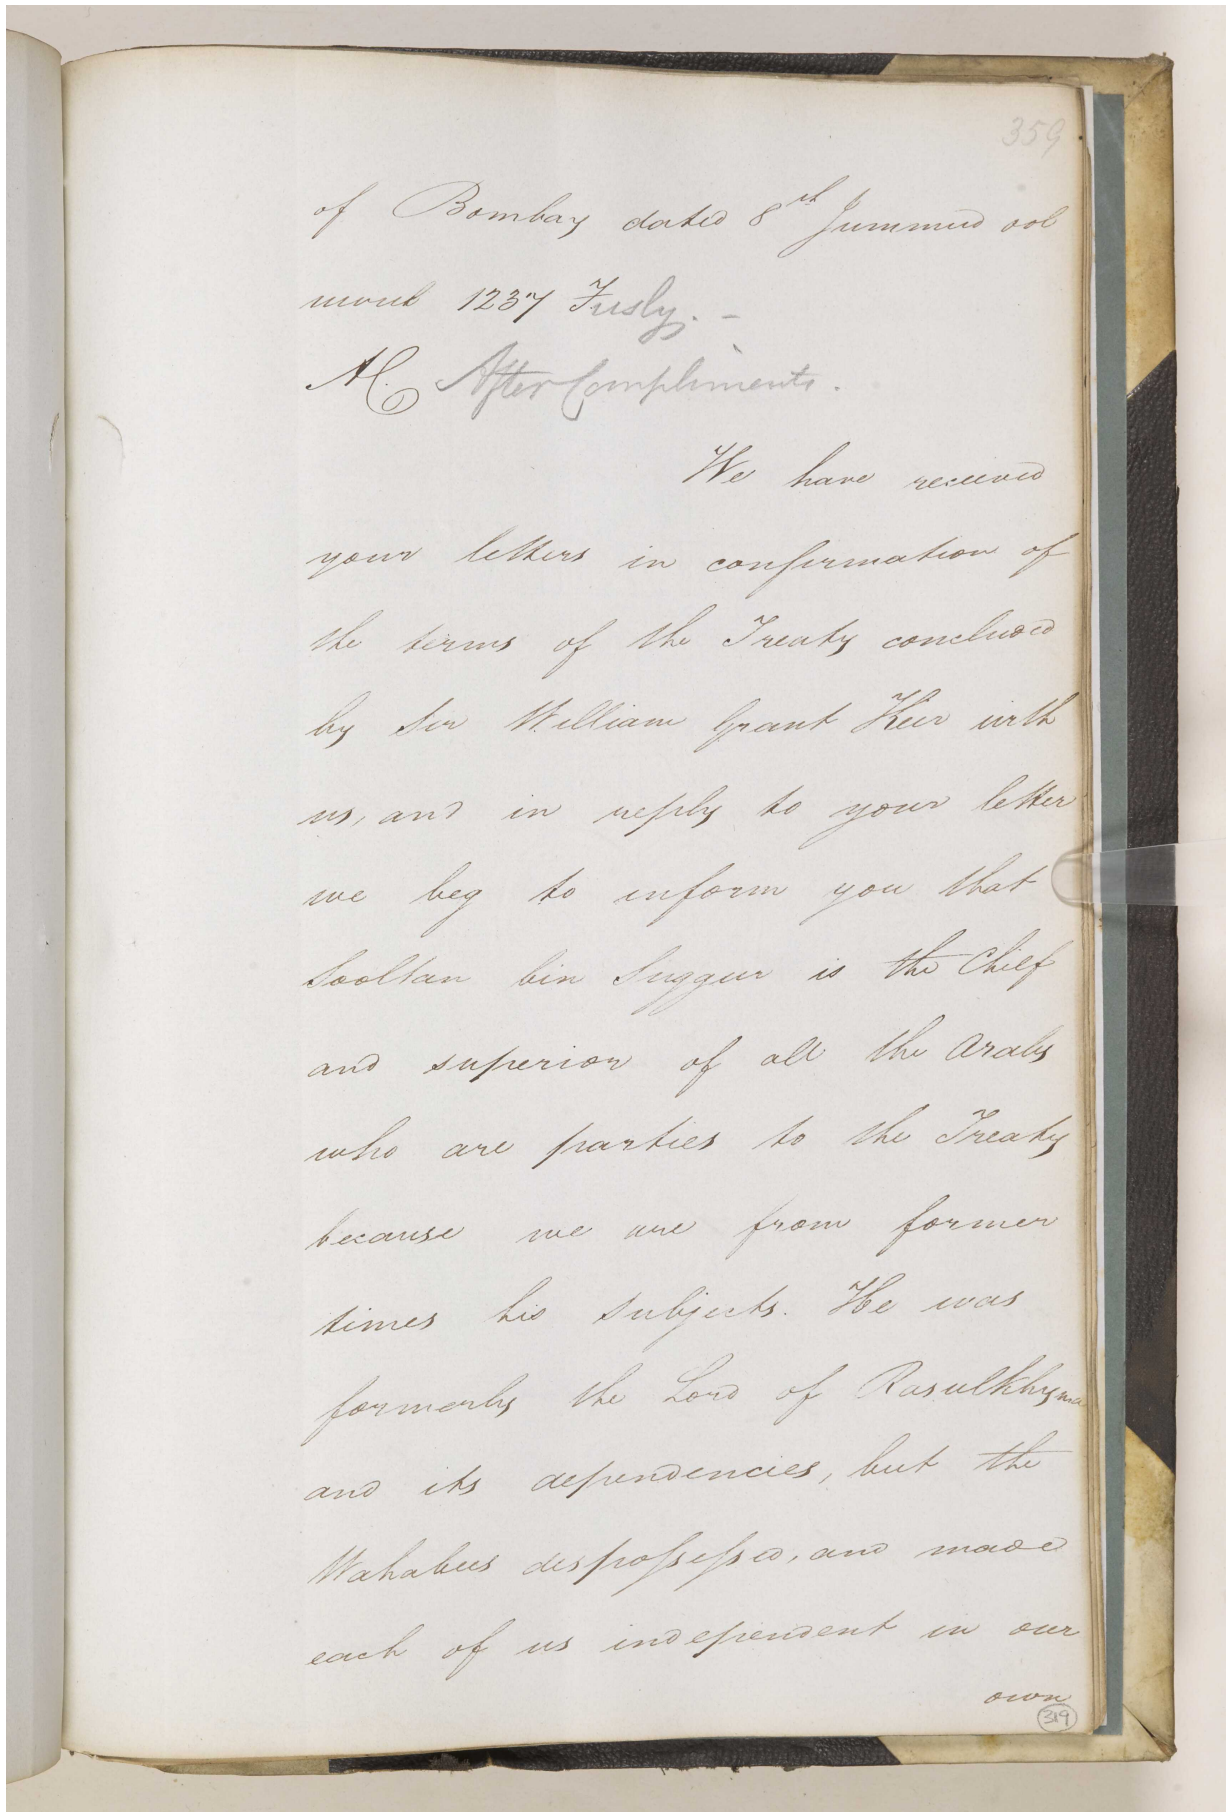 359
of Bombay dated 8th Jummud ool
uwul 1237 Fusly. -
AC. After Compliments.
We have received
your letters in confirmation of
the terms of the Treaty concluded
by Sir William Grant Keir with
us, and in reply to your letter
we beg to inform you that
Sooltan bin Suggur is the Chief
and superior of all the Arabs
who are parties to the Treaty
because we are from former
times his subjects. He was
formerly the Lord of Rasulkhyma
and its dependencies, but the
Wahabees dispossessed, and made
each of us independent in our
own
319